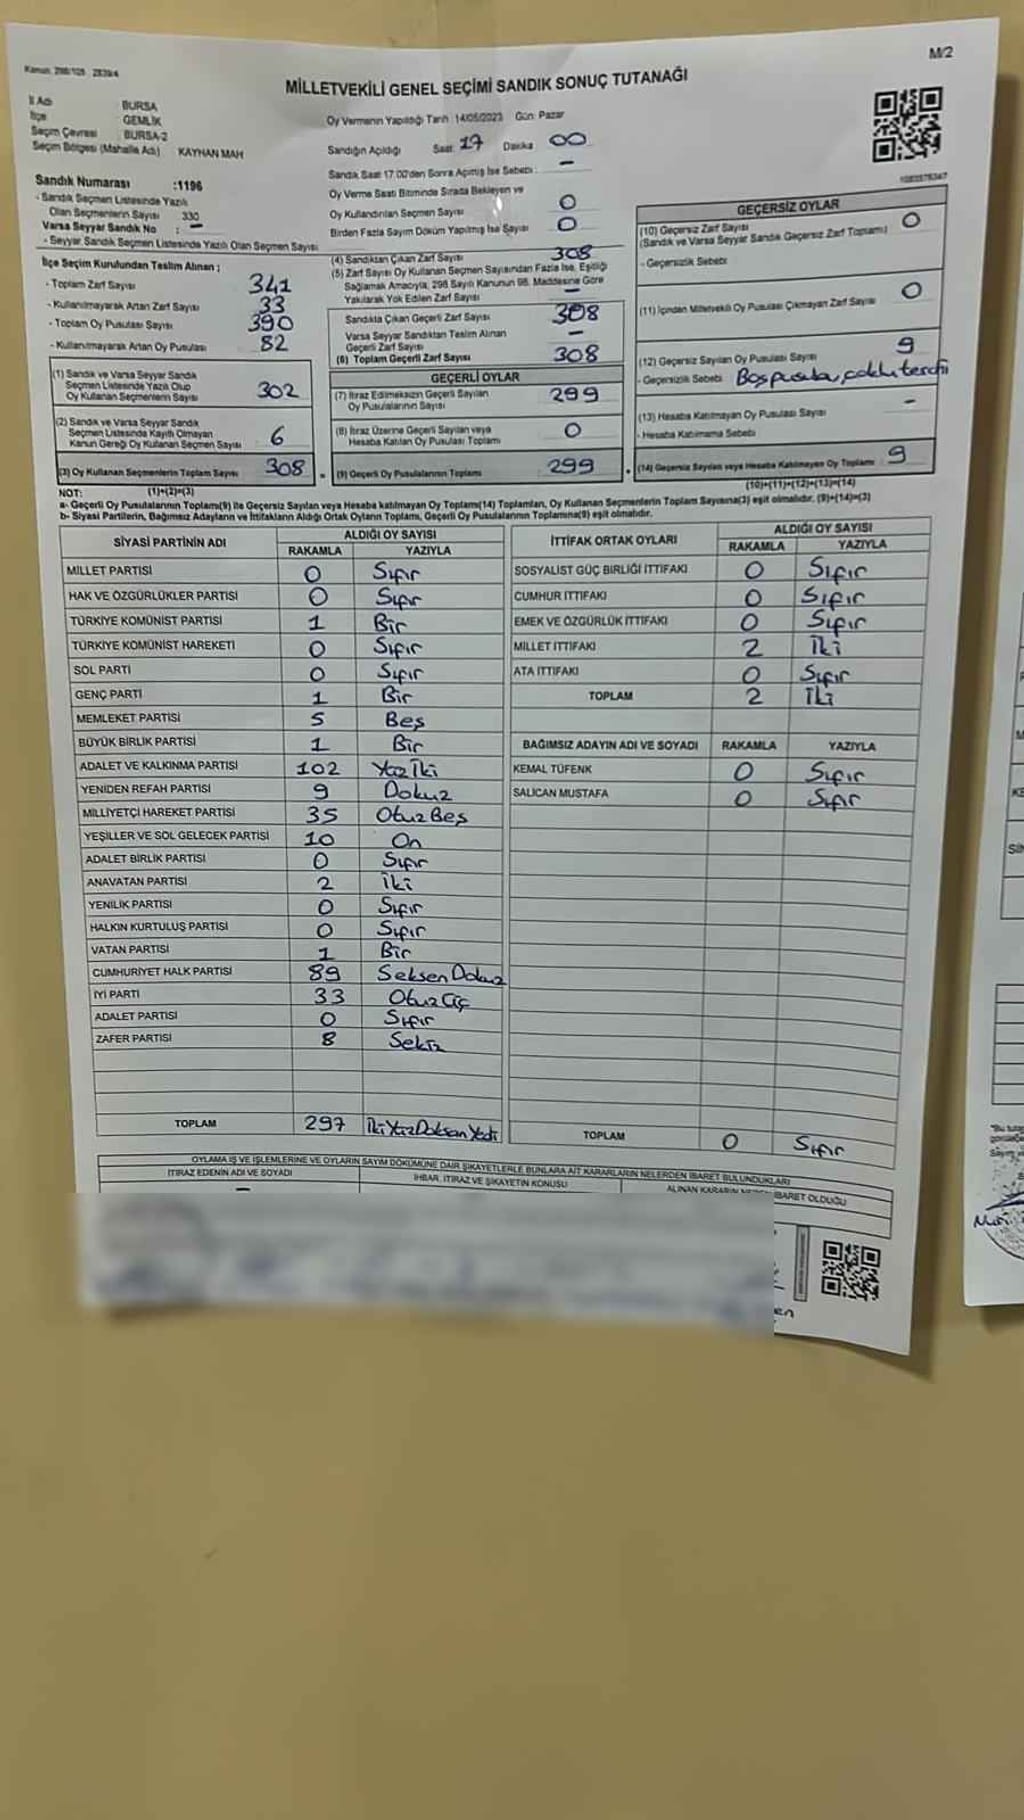 M/2
Kanun: 298/105 2839/4
MİLLETVEKİLİ GENEL SEÇİMİ SANDIK SONUÇ TUTANAĞI
İl Adı : BURSA
İlçe : GEMLİK
Seçim Çevresi : BURSA-2
Seçim Bölgesi (Mahalle Adı) KAYHAN MAH
Oy Vermenin Yapıldığı Tarih 14/05/2023 Gün: Pazar
Sandığın Açıldığı Saat: 17 Dakika 00
Sandık Saat 17.00'den Sonra Açılmış İse Sebebi : -
Oy Verme Saati Bitiminde Sırada Bekleyen ve
Oy Kullandırılan Seçmen Sayısı 0
Birden Fazla Sayım Döküm Yapılmış İse Sayısı 0
Sandık Numarası :1196
- Sandık Seçmen Listesinde Yazılı
Olan Seçmenlerin Sayısı 330
Varsa Seyyar Sandık No : -
- Seyyar Sandık Seçmen Listesinde Yazılı Olan Seçmen Sayısı
İlçe Seçim Kurulundan Teslim Alınan ;
- Toplam Zarf Sayısı 341
- Kullanılmayarak Artan Zarf Sayısı 33
- Toplam Oy Pusulası Sayısı 390
- Kullanılmayarak Artan Oy Pusulası 82
(1) Sandık ve Varsa Seyyar Sandık
Seçmen Listesinde Yazılı Olup
Oy Kullanan Seçmenlerin Sayısı 302
(2) Sandık ve Varsa Seyyar Sandık
Seçmen Listesinde Kayıtlı Olmayan
Kanun Gereği Oy Kullanan Seçmen Sayısı 6
(3) Oy Kullanan Seçmenlerin Toplam Sayısı 308
(1)+(2)=(3)
(4) Sandıktan Çıkan Zarf Sayısı 308
(5) Zarf Sayısı Oy Kullanan Seçmen Sayısından Fazla İse, Eşitliği
Sağlamak Amacıyla, 298 Sayılı Kanunun 98. Maddesine Göre
Yakılarak Yok Edilen Zarf Sayısı -
Sandıkta Çıkan Geçerli Zarf Sayısı 308
Varsa Seyyar Sandıktan Teslim Alınan
Geçerli Zarf Sayısı -
(6) Toplam Geçerli Zarf Sayısı 308
GEÇERLİ OYLAR
(7) İtiraz Edilmeksizin Geçerli Sayılan
Oy Pusulalarının Sayısı 299
(8) İtiraz Üzerine Geçerli Sayılan veya
Hesaba Katılan Oy Pusulası Toplamı 0
= (9) Geçerli Oy Pusulalarının Toplamı 299
GEÇERSİZ OYLAR
(10) Geçersiz Zarf Sayısı
(Sandık ve Varsa Seyyar Sandık Geçersiz Zarf Toplamı) 0
- Geçersizlik Sebebi
(11) İçinden Milletvekili Oy Pusulası Çıkmayan Zarf Sayısı 0
(12) Geçersiz Sayılan Oy Pusulası Sayısı 9
- Geçersizlik Sebebi Boş pusula, çoklu tercih
(13) Hesaba Katılmayan Oy Pusulası Sayısı -
- Hesaba Katılmama Sebebi
+ (14) Geçersiz Sayılan veya Hesaba Katılmayan Oy Toplamı 9
(10)+(11)+(12)+(13)=(14)
NOT:
a- Geçerli Oy Pusulalarının Toplamı(9) ile Geçersiz Sayılan veya Hesaba katılmayan Oy Toplamı(14) Toplamları, Oy Kullanan Seçmenlerin Toplam Sayısına(3) eşit olmalıdır. (9)+(14)=(3)
b- Siyasi Partilerin, Bağımsız Adayların ve İttifakların Aldığı Ortak Oyların Toplamı, Geçerli Oy Pusulalarının Toplamına(9) eşit olmalıdır.
SİYASİ PARTİNİN ADI ALDIĞI OY SAYISI
RAKAMLA YAZIYLA
MİLLET PARTİSİ 0 Sıfır
HAK VE ÖZGÜRLÜKLER PARTİSİ 0 Sıfır
TÜRKİYE KOMÜNİST PARTİSİ 1 Bir
TÜRKİYE KOMÜNİST HAREKETİ 0 Sıfır
SOL PARTİ 0 Sıfır
GENÇ PARTİ 1 Bir
MEMLEKET PARTİSİ 5 Beş
BÜYÜK BİRLİK PARTİSİ 1 Bir
ADALET VE KALKINMA PARTİSİ 102 Yüz İki
YENİDEN REFAH PARTİSİ 9 Dokuz
MİLLİYETÇİ HAREKET PARTİSİ 35 Otuz Beş
YEŞİLLER VE SOL GELECEK PARTİSİ 10 On
ADALET BİRLİK PARTİSİ 0 Sıfır
ANAVATAN PARTİSİ 2 İki
YENİLİK PARTİSİ 0 Sıfır
HALKIN KURTULUŞ PARTİSİ 0 Sıfır
VATAN PARTİSİ 1 Bir
CUMHURİYET HALK PARTİSİ 89 Seksen Dokuz
İYİ PARTİ 33 Otuz Üç
ADALET PARTİSİ 0 Sıfır
ZAFER PARTİSİ 8 Sekiz
TOPLAM 297 İki Yüz Doksan Yedi
İTTİFAK ORTAK OYLARI ALDIĞI OY SAYISI
RAKAMLA YAZIYLA
SOSYALİST GÜÇ BİRLİĞİ İTTİFAKI 0 Sıfır
CUMHUR İTTİFAKI 0 Sıfır
EMEK VE ÖZGÜRLÜK İTTİFAKI 0 Sıfır
MİLLET İTTİFAKI 2 İki
ATA İTTİFAKI 0 Sıfır
TOPLAM 2 İki
BAĞIMSIZ ADAYIN ADI VE SOYADI RAKAMLA YAZIYLA
KEMAL TÜFENK 0 Sıfır
SALİCAN MUSTAFA 0 Sıfır
TOPLAM 0 Sıfır
OYLAMA İŞ VE İŞLEMLERİNE VE OYLARIN SAYIM DÖKÜMÜNE DAİR ŞİKAYETLERLE BUNLARA AİT KARARLARIN NELERDEN İBARET BULUNDUKLARI
İTİRAZ EDENİN ADI VE SOYADI İHBAR, İTİRAZ VE ŞİKAYETİN KONUSU ALINAN KARARIN İBARET OLDUĞU
-